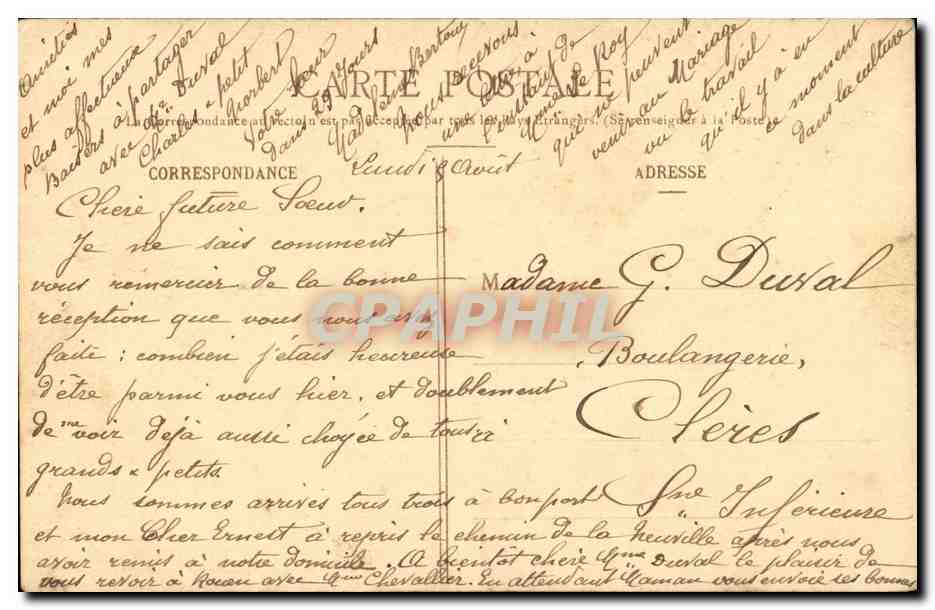 CARTE POSTALE
La Correspondance au recto n'est pas acceptée par tous les Pays Étrangers. (Se renseigner à la Poste)
CORRESPONDANCE
ADRESSE
Lundi 8 Août
Chère future Soeur.
Je ne sais comment
vous remercier de la bonne
réception que vous nous avez
faite ; combien j'étais heureuse
d'être parmi vous hier, et doublement
de me voir déjà aussi choyée de tous
grands & petits.
Nous sommes arrivés tous trois à bon port
et mon Cher Ernest à repris le chemin de la Neuville après nous
avoir remis à notre domicile. A bientôt chère Mme Duval le plaisir de
vous revoir à Rouen avec Mme Chevallier. En attendant Maman vous envoie ses bonnes
Amitiés
et moi mes
plus affectueux
Baisers à partager
avec Duval
Charles & petit
Norbert
Votre Soeur
dans 29 Jours
Berthe
Nous recevons
un à
l'instant de
Roy
qui ne peuvent
venir au Mariage
vu le travail
qu'il y à en
ce moment
dans la culture
Madame G. Duval
Boulangerie,
Clères
Sne Inférieure
CPAPHIL